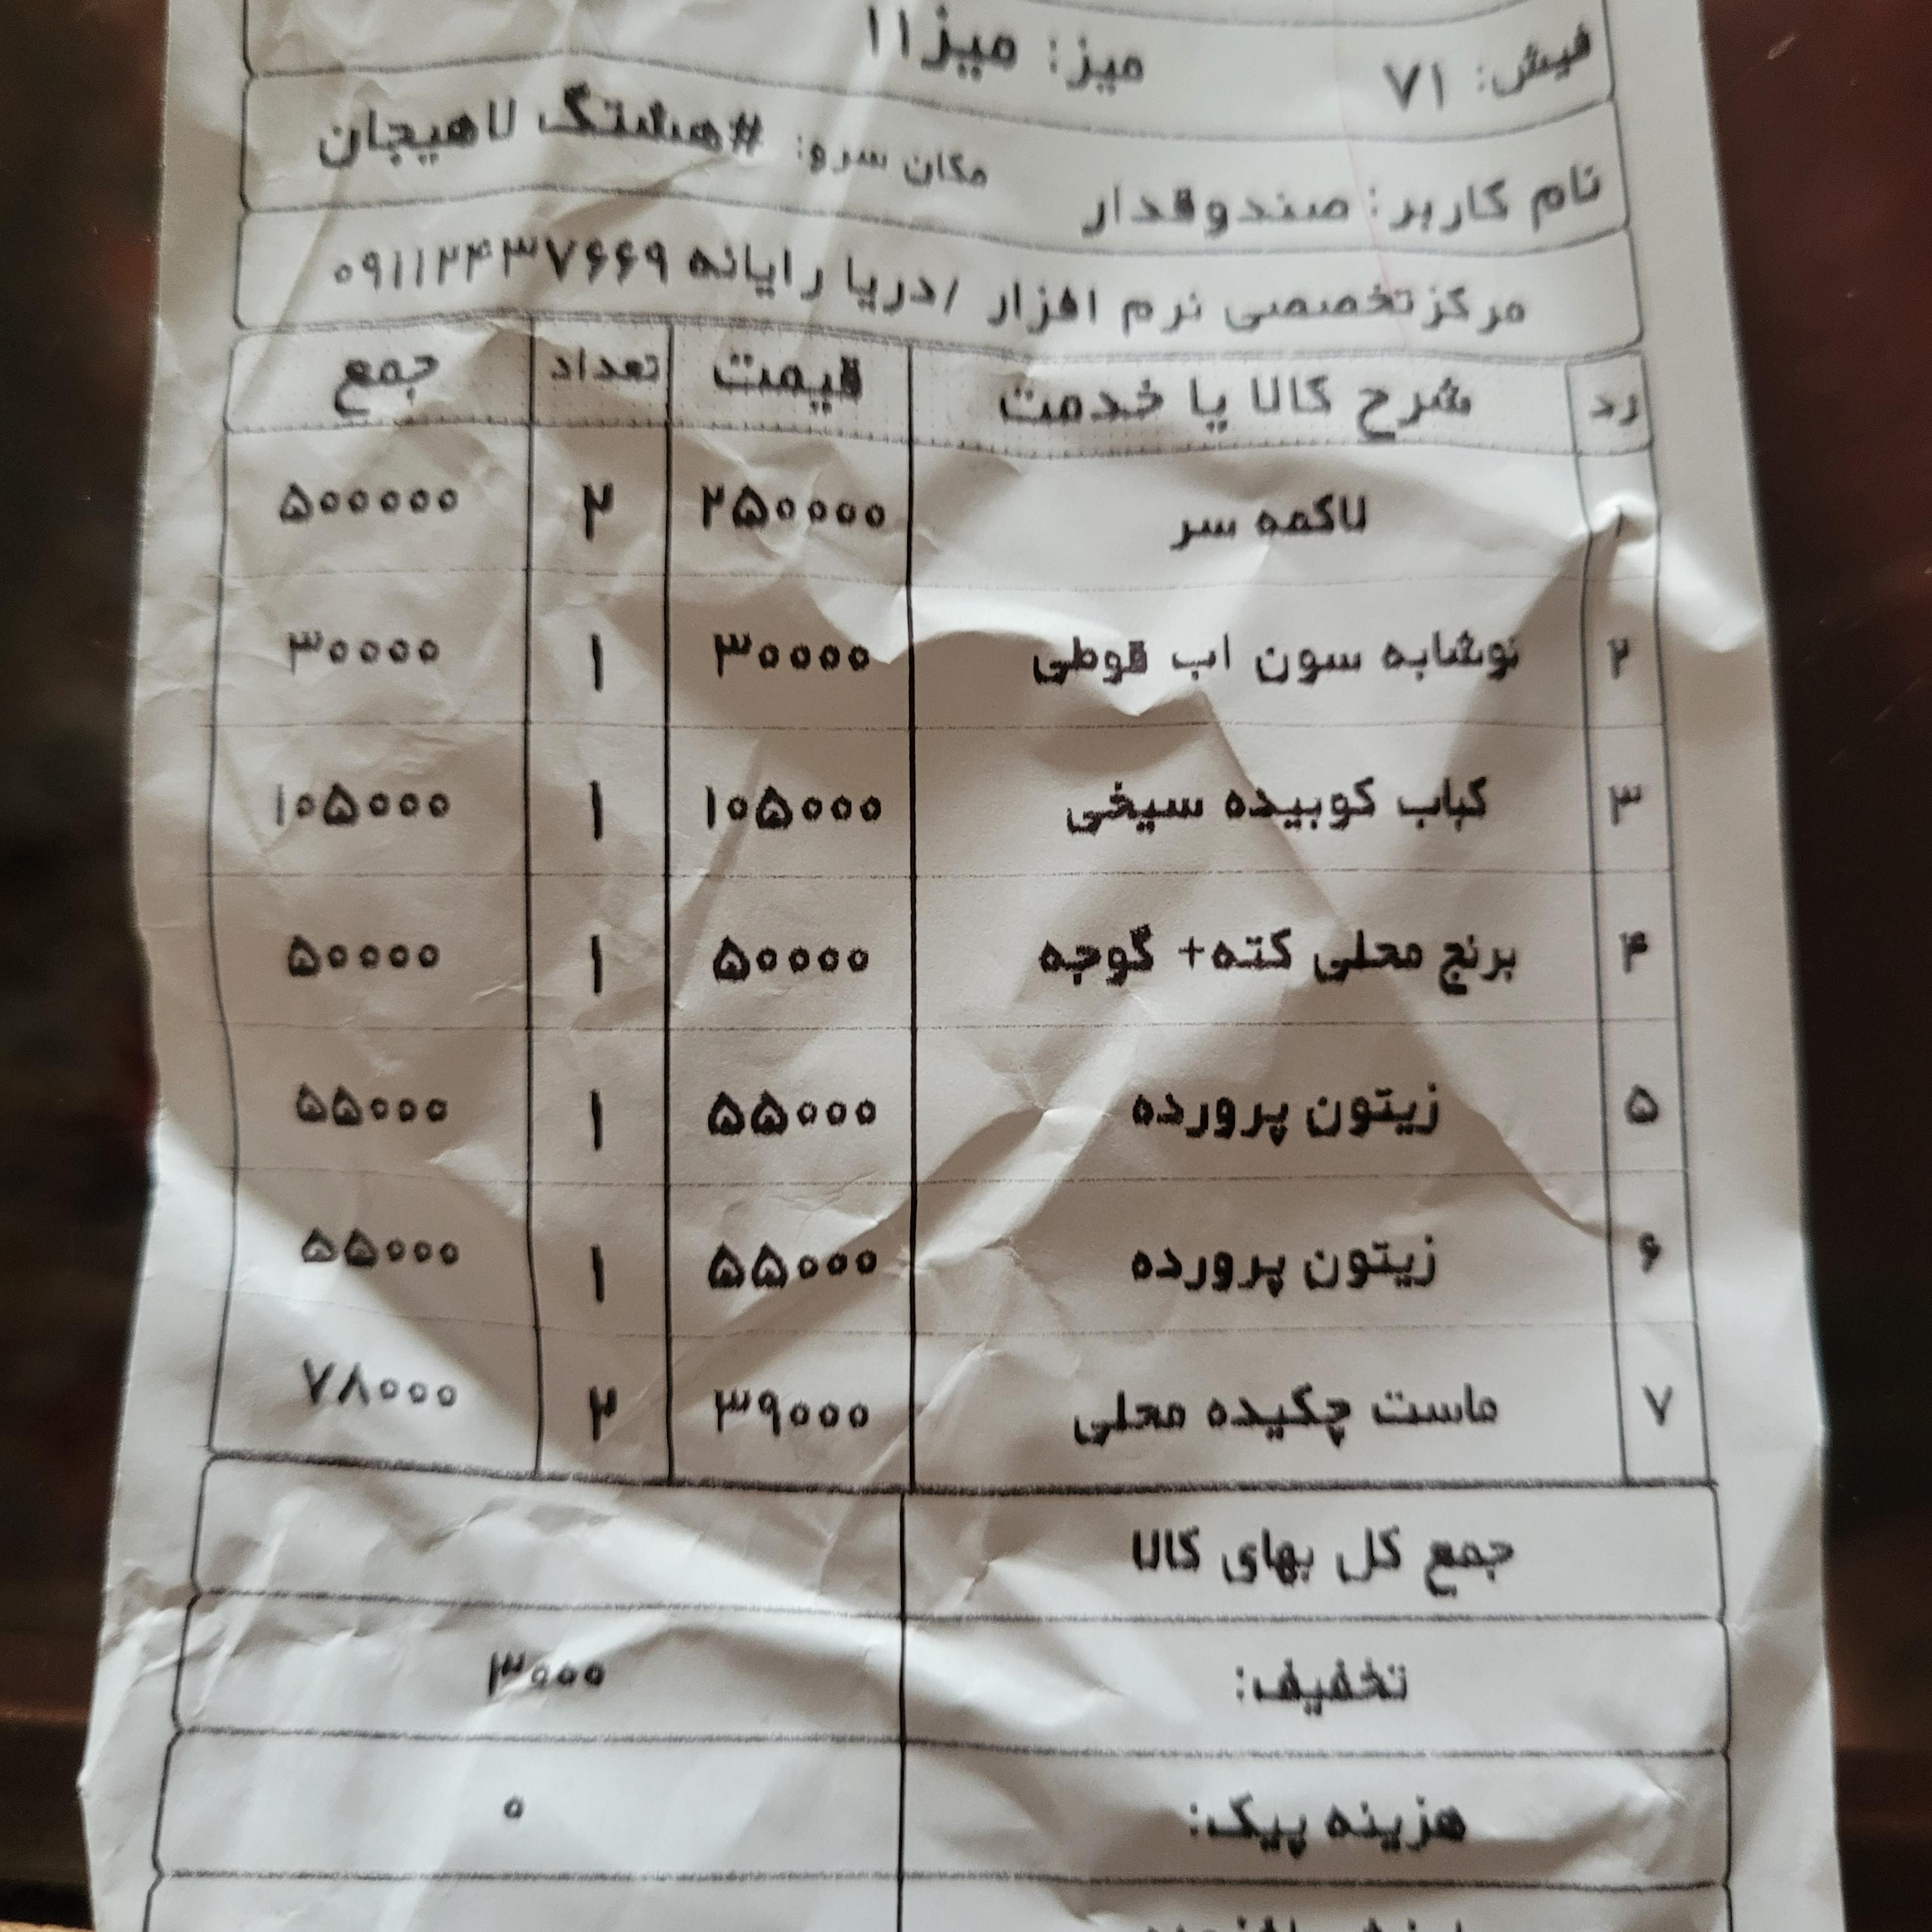 فیش: ۷۱ میز: میز۱۱
نام کاربر: صندوقدار مکان سرو: #هشتگ لاهیجان
مرکز تخصصی نرم افزار /دریا رایانه ۰۹۱۱۲۴۳۷۶۶۹
رد شرح کالا یا خدمت قیمت تعداد جمع
۱ لاکمه سر ۲۵۰۰۰۰ ۲ ۵۰۰۰۰۰
۲ نوشابه سون اب قوطی ۳۰۰۰۰ ۱ ۳۰۰۰۰
۳ کباب کوبیده سیخی ۱۰۵۰۰۰ ۱ ۱۰۵۰۰۰
۴ برنج محلی کته+ گوجه ۵۰۰۰۰ ۱ ۵۰۰۰۰
۵ زیتون پرورده ۵۵۰۰۰ ۱ ۵۵۰۰۰
۶ زیتون پرورده ۵۵۰۰۰ ۱ ۵۵۰۰۰
۷ ماست چکیده محلی ۳۹۰۰۰ ۲ ۷۸۰۰۰
جمع کل بهای کالا
تخفیف: ۳۰۰۰
هزینه پیک: ۰